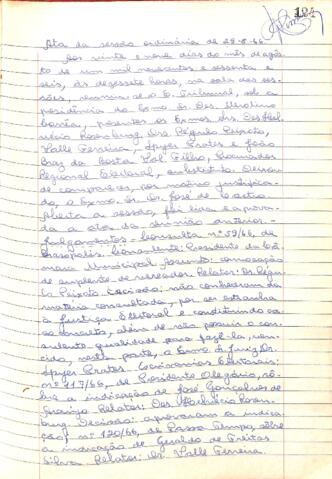 121
Ata da sessão ordinária de 29-8-66
Aos vinte e nove dias do mês de agôs-
to de um mil novecentos e sessenta e
seis, às dezessete horas, na sala das ses-
sões, reuniu-se o E. Tribunal, sob a
presidência do Exmo Sr. Des. Merolino
Corrêa, presentes os Exmos. Srs. Des. Hel-
vécio Rosenburg, Drs. Régulo Peixoto,
Valle Ferreira, Prates e João
Braz da Costa Val Filho, Procurador
Regional Eleitoral, substituto. Deixou
de comparecer, por motivo justifica-
do, o Exmo. Sr. Dr. José de Castro.
Aberta a sessão, foi lida e aprova-
da a ata da reunião anterior.
Julgamentos - Consulta nº 59/66, de
Brasópolis. Consulente: Presidente da Câ-
mara Municipal. Assunto: convocação
de suplente de vereador. Relator: Dr. Régu-
lo Peixoto. Decisão: não conheceram da
matéria consultada, por ser estranha
à Justiça Eleitoral e constituindo ca-
so concreto, além de não possuir o con-
sulente qualidade para fazê-la, ven-
cido, nesta parte, o Exmo. Sr. Juiz Dr.
Prates - Escrivanias Eleitorais:
nº 117/66, de Presidente Olegário, sô-
bre a indicação de José Gonçalves de
Araújo. Relator: Des. Helvécio Rosen-
burg. Decisão: aprovaram a indica-
ção; nº 120/66, de Passa Tempo, sôbre
a indicação de Geraldo de Freitas
Silva. Relator: Dr. Valle Ferreira.